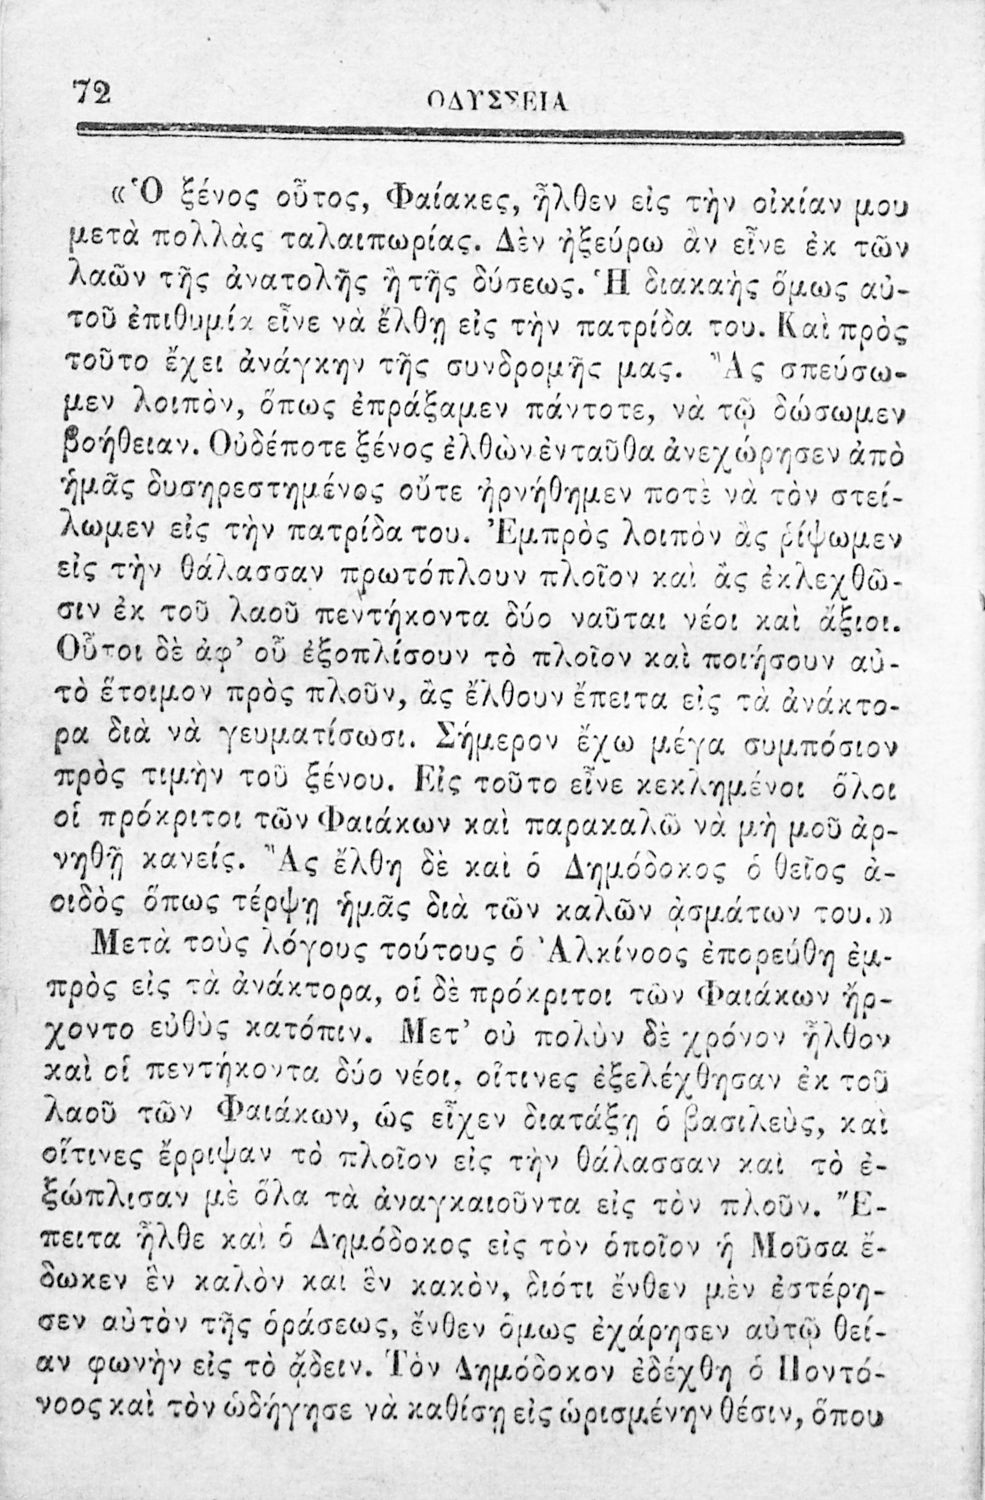 72
ΟΔΥΣΣΕΙΑ
«Ὁ ξένος οὗτος, Φαίακες, ἦλθεν εἰς τὴν οἰκίαν μου
μετὰ πολλὰς ταλαιπωρίας. Δὲν ἠξεύρω ἂν εἶνε ἐκ τῶν
λαῶν τῆς ἀνατολῆς ἢ τῆς δύσεως. Ἡ διακαὴς ὅμως αὐ-
τοῦ ἐπιθυμία εἶνε νὰ ἔλθῃ εἰς τὴν πατρίδα του. Καὶ πρὸς
τοῦτο ἔχει ἀνάγκην τῆς συνδρομῆς μας. Ἂς σπεύσω-
μεν λοιπὸν, ὅπως ἐπράξαμεν πάντοτε, νὰ τῷ δώσωμεν
βοήθειαν. Οὐδέποτε ξένος ἐλθὼν ἐνταῦθα ἀνεχώρησεν ἀπὸ
ἡμᾶς δυσηρεστημένος οὔτε ἠρνήθημεν ποτὲ νὰ τὸν στεί-
λωμεν εἰς τὴν πατρίδα του. Ἐμπρὸς λοιπὸν ἂς ῥίψωμεν
εἰς τὴν θάλασσαν πρωτόπλουν πλοῖον καὶ ἂς ἐκλεχθῶ-
σιν ἐκ τοῦ λαοῦ πεντήκοντα δύο ναῦται νέοι καὶ ἄξιοι.
Οὗτοι δὲ ἀφ’ οὗ ἐξοπλίσουν τὸ πλοῖον καὶ ποιήσουν αὐ-
τὸ ἕτοιμον πρὸς πλοῦν, ἂς ἔλθουν ἔπειτα εἰς τὰ ἀνάκτο-
ρα διὰ νὰ γευματίσωσι. Σήμερον ἔχω μέγα συμπόσιον
πρὸς τιμὴν τοῦ ξένου. Εἰς τοῦτο εἶνε κεκλημένοι ὅλοι
οἱ πρόκριτοι τῶν Φαιάκων καὶ παρακαλῶ νὰ μὴ μοῦ ἀρ-
νηθῇ κανείς. Ἂς ἔλθῃ δὲ καὶ ὁ Δημόδοκος ὁ θεῖος ἀ-
οιδὸς ὅπως τέρψῃ ἡμᾶς διὰ τῶν καλῶν ᾀσμάτων του.»
Μετὰ τοὺς λόγους τούτους ὁ Ἀλκίνοος ἐπορεύθη ἐμ-
πρὸς εἰς τὰ ἀνάκτορα, οἱ δὲ πρόκριτοι τῶν Φαιάκων ἤρ-
χοντο εὐθὺς κατόπιν. Μετ’ οὐ πολὺν δὲ χρόνον ἦλθον
καὶ οἱ πεντήκοντα δύο νέοι, οἵτινες ἐξελέχθησαν ἐκ τοῦ
λαοῦ τῶν Φαιάκων, ὡς εἶχεν διατάξῃ ὁ βασιλεὺς, καὶ
οἵτινες ἔρριψαν τὸ πλοῖον εἰς τὴν θάλασσαν καὶ τὸ ἐ-
ξώπλισαν μὲ ὅλα τὰ ἀναγκαιοῦντα εἰς τὸν πλοῦν. Ἔ-
πειτα ἦλθε καὶ ὁ Δημόδοκος εἰς τὸν ὁποῖον ἡ Μοῦσα ἔ-
δωκεν ἓν καλὸν καὶ ἓν κακὸν, διότι ἔνθεν μὲν ἐστέρη-
σεν αὐτὸν τῆς ὁράσεως, ἔνθεν ὅμως ἐχάρησεν αὐτῷ θεί-
αν φωνὴν εἰς τὸ ᾄδειν. Τὸν Δημόδοκον ἐδέχθη ὁ Ποντό-
νοος καὶ τὸν ὡδήγησε νὰ καθίσῃ εἰς ὡρισμένην θέσιν, ὅπου